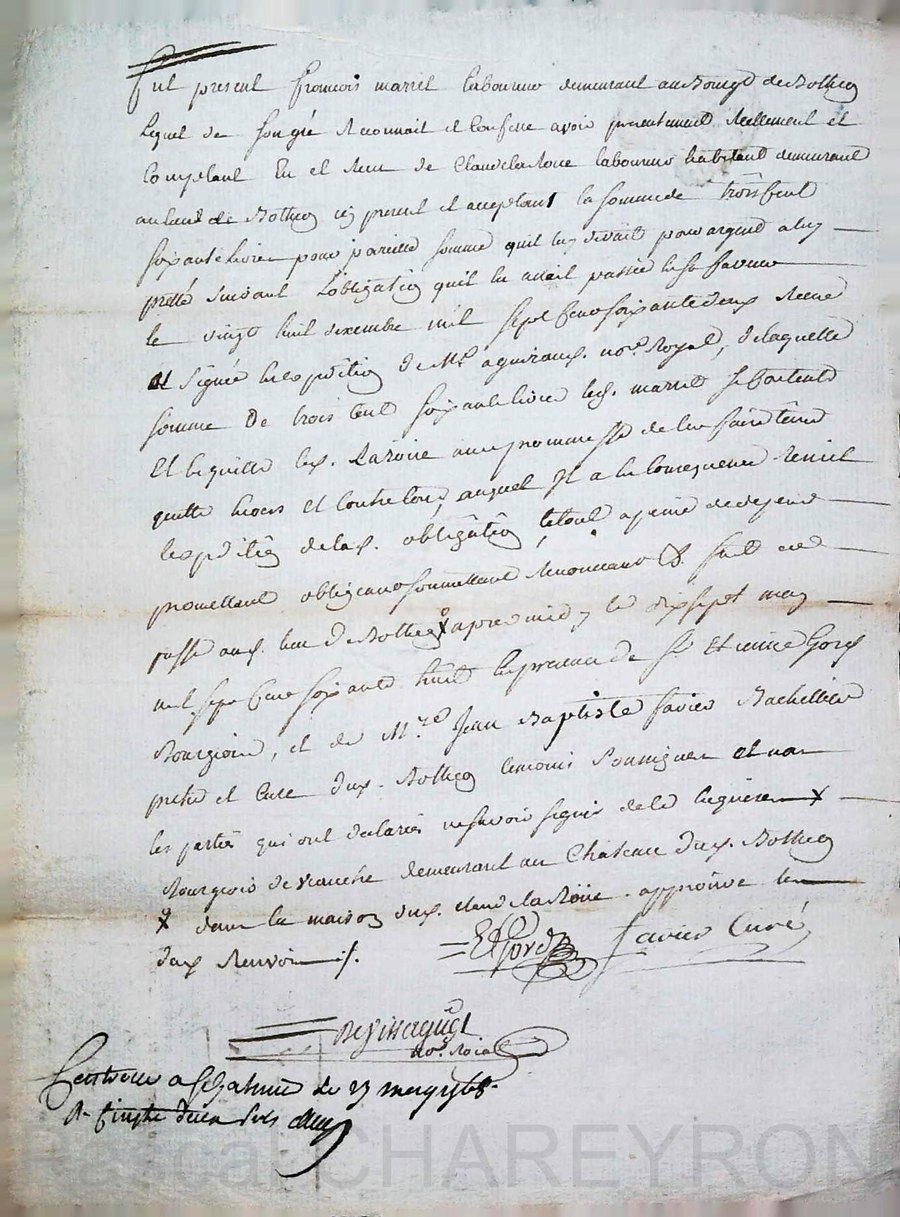 Fut present François marcel laboureur demeurant au Bourg de Bothieu
Lequel de son gré Reconnait et Confesse avoir presentement Reellement et
Comptant Eu et Receu de Claude la Roue laboureur habitant demeurant
au lieu de Bothieu icy present et acceptant la somme de trois Cent
soixante livres pour pareille somme quil luy devait pour argent a luy
pretté suivant Lobligatiõ quil lui avait passée en sa faveur
le vingt huit decembre mil sept Cent soixante deux Receue
et signée Lexpeditiõ de Me no.re Royal, de laquelle
somme De trois Cent soixante livres led. marcel se Contente
Et Enquitte led. Laroüe avec promesse de len faire tenir
quitte Envers et Contre tous, auquel Il a en Consequence Remis
lexpeditiõ de lad. obligatiõ, letout a peine de depend
promettant obligeant soumettant Renonceant & fait et
passé aud. lieu de Bothieu X apres midy le dix sept may
mil sept Cent soixante huit En presence de Sr Etienne Gord
Bourgeois, et de M.re Jean Baptiste favier Bachellier
pretre et Curé dud. Bothieu temoins soussignés et non
les parties qui ont declarés ne savoir signer de ce Enquises X
Bourgeois de demeurant au Chateau dud. Bothieu
X dans la maison dud. claude la Roüe. approuvé les
deux Renvois ./.
E Gord favier Curé
no.re Roial
Controllé a le 27 may 1768.